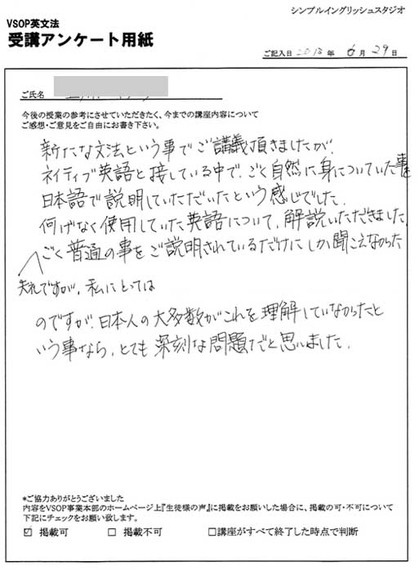 シンプルイングリッシュスタジオ
VSOP英文法
受講アンケート用紙
ご記入日 2013年 6月 29日
ご氏名
今後の授業の参考にさせていただきたく、今までの講座内容について
ご感想・ご意見をご自由にお書き下さい。
新たな文法という事でご講義頂きましたが、
ネイティブ英語と接している中で、ごく自然に身についていた事を
日本語で説明していただいたという感じでした。
何げなく使用していた英語について、解説いただきました。
ごく普通の事をご説明されているだけにしか聞こえなかった
失礼ですが、私にとっては
のですが、日本人の大多数がこれを理解していなかったと
いう事なら、とても深刻な問題だと思いました。
*ご協力ありがとうございました
内容をVSOP事業本部のホームページ上『生徒様の声』に掲載をお願いした場合に、掲載の可・不可について
下記にチェックをお願い致します。
☑掲載可 □掲載不可 □講座がすべて終了した時点で判断